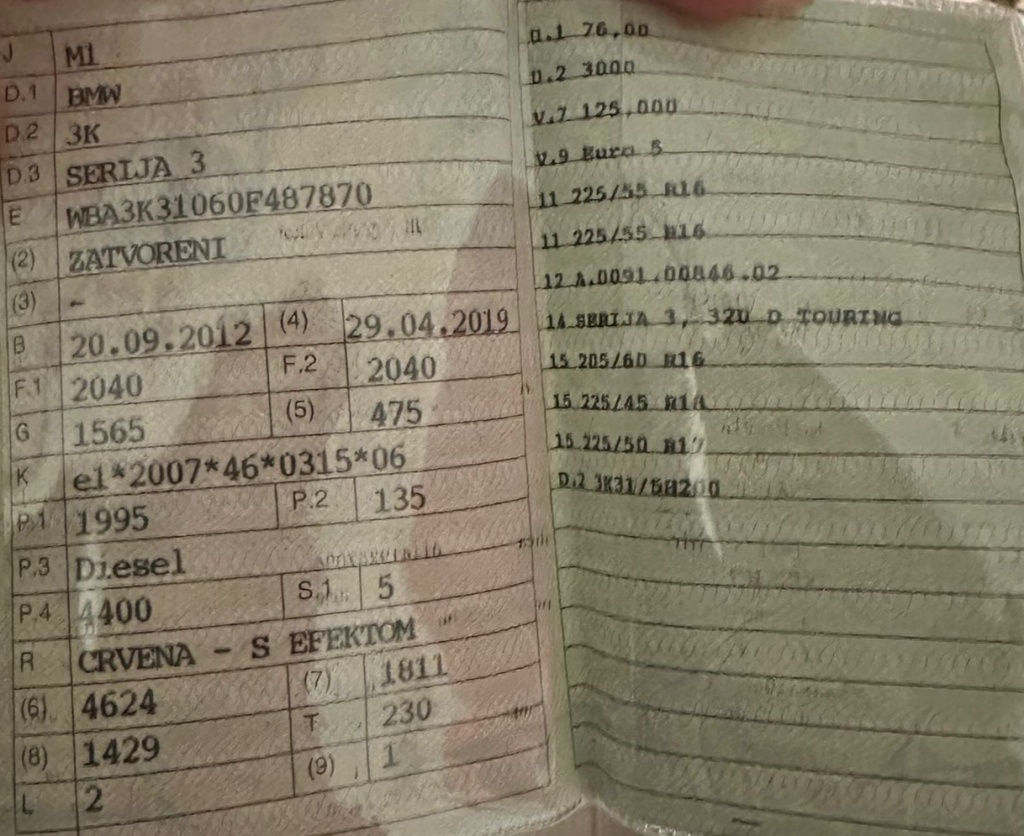 J M1
D.1 BMW
D.2 3K
D.3 SERIJA 3
E WBA3K31060F487870
(2) ZATVORENI
(3) -
B 20.09.2012 (4) 29.04.2019
F.1 2040 F.2 2040
G 1565 (5) 475
K e1*2007*46*0315*06
P.1 1995 P.2 135
P.3 Diesel
P.4 4400 S.1 5
R CRVENA - S EFEKTOM
(6) 4624 (7) 1811
(8) 1429 T 230
L 2 (9) 1
U.1 76,00
U.2 3000
V.7 125,000
V.9 Euro 5
11 225/55 R16
11 225/55 R16
12 A.0091.00846.02
14 SERIJA 3, 320 D TOURING
15 205/60 R16
15 225/45 R18
15 225/50 R17
D.2 3K31/